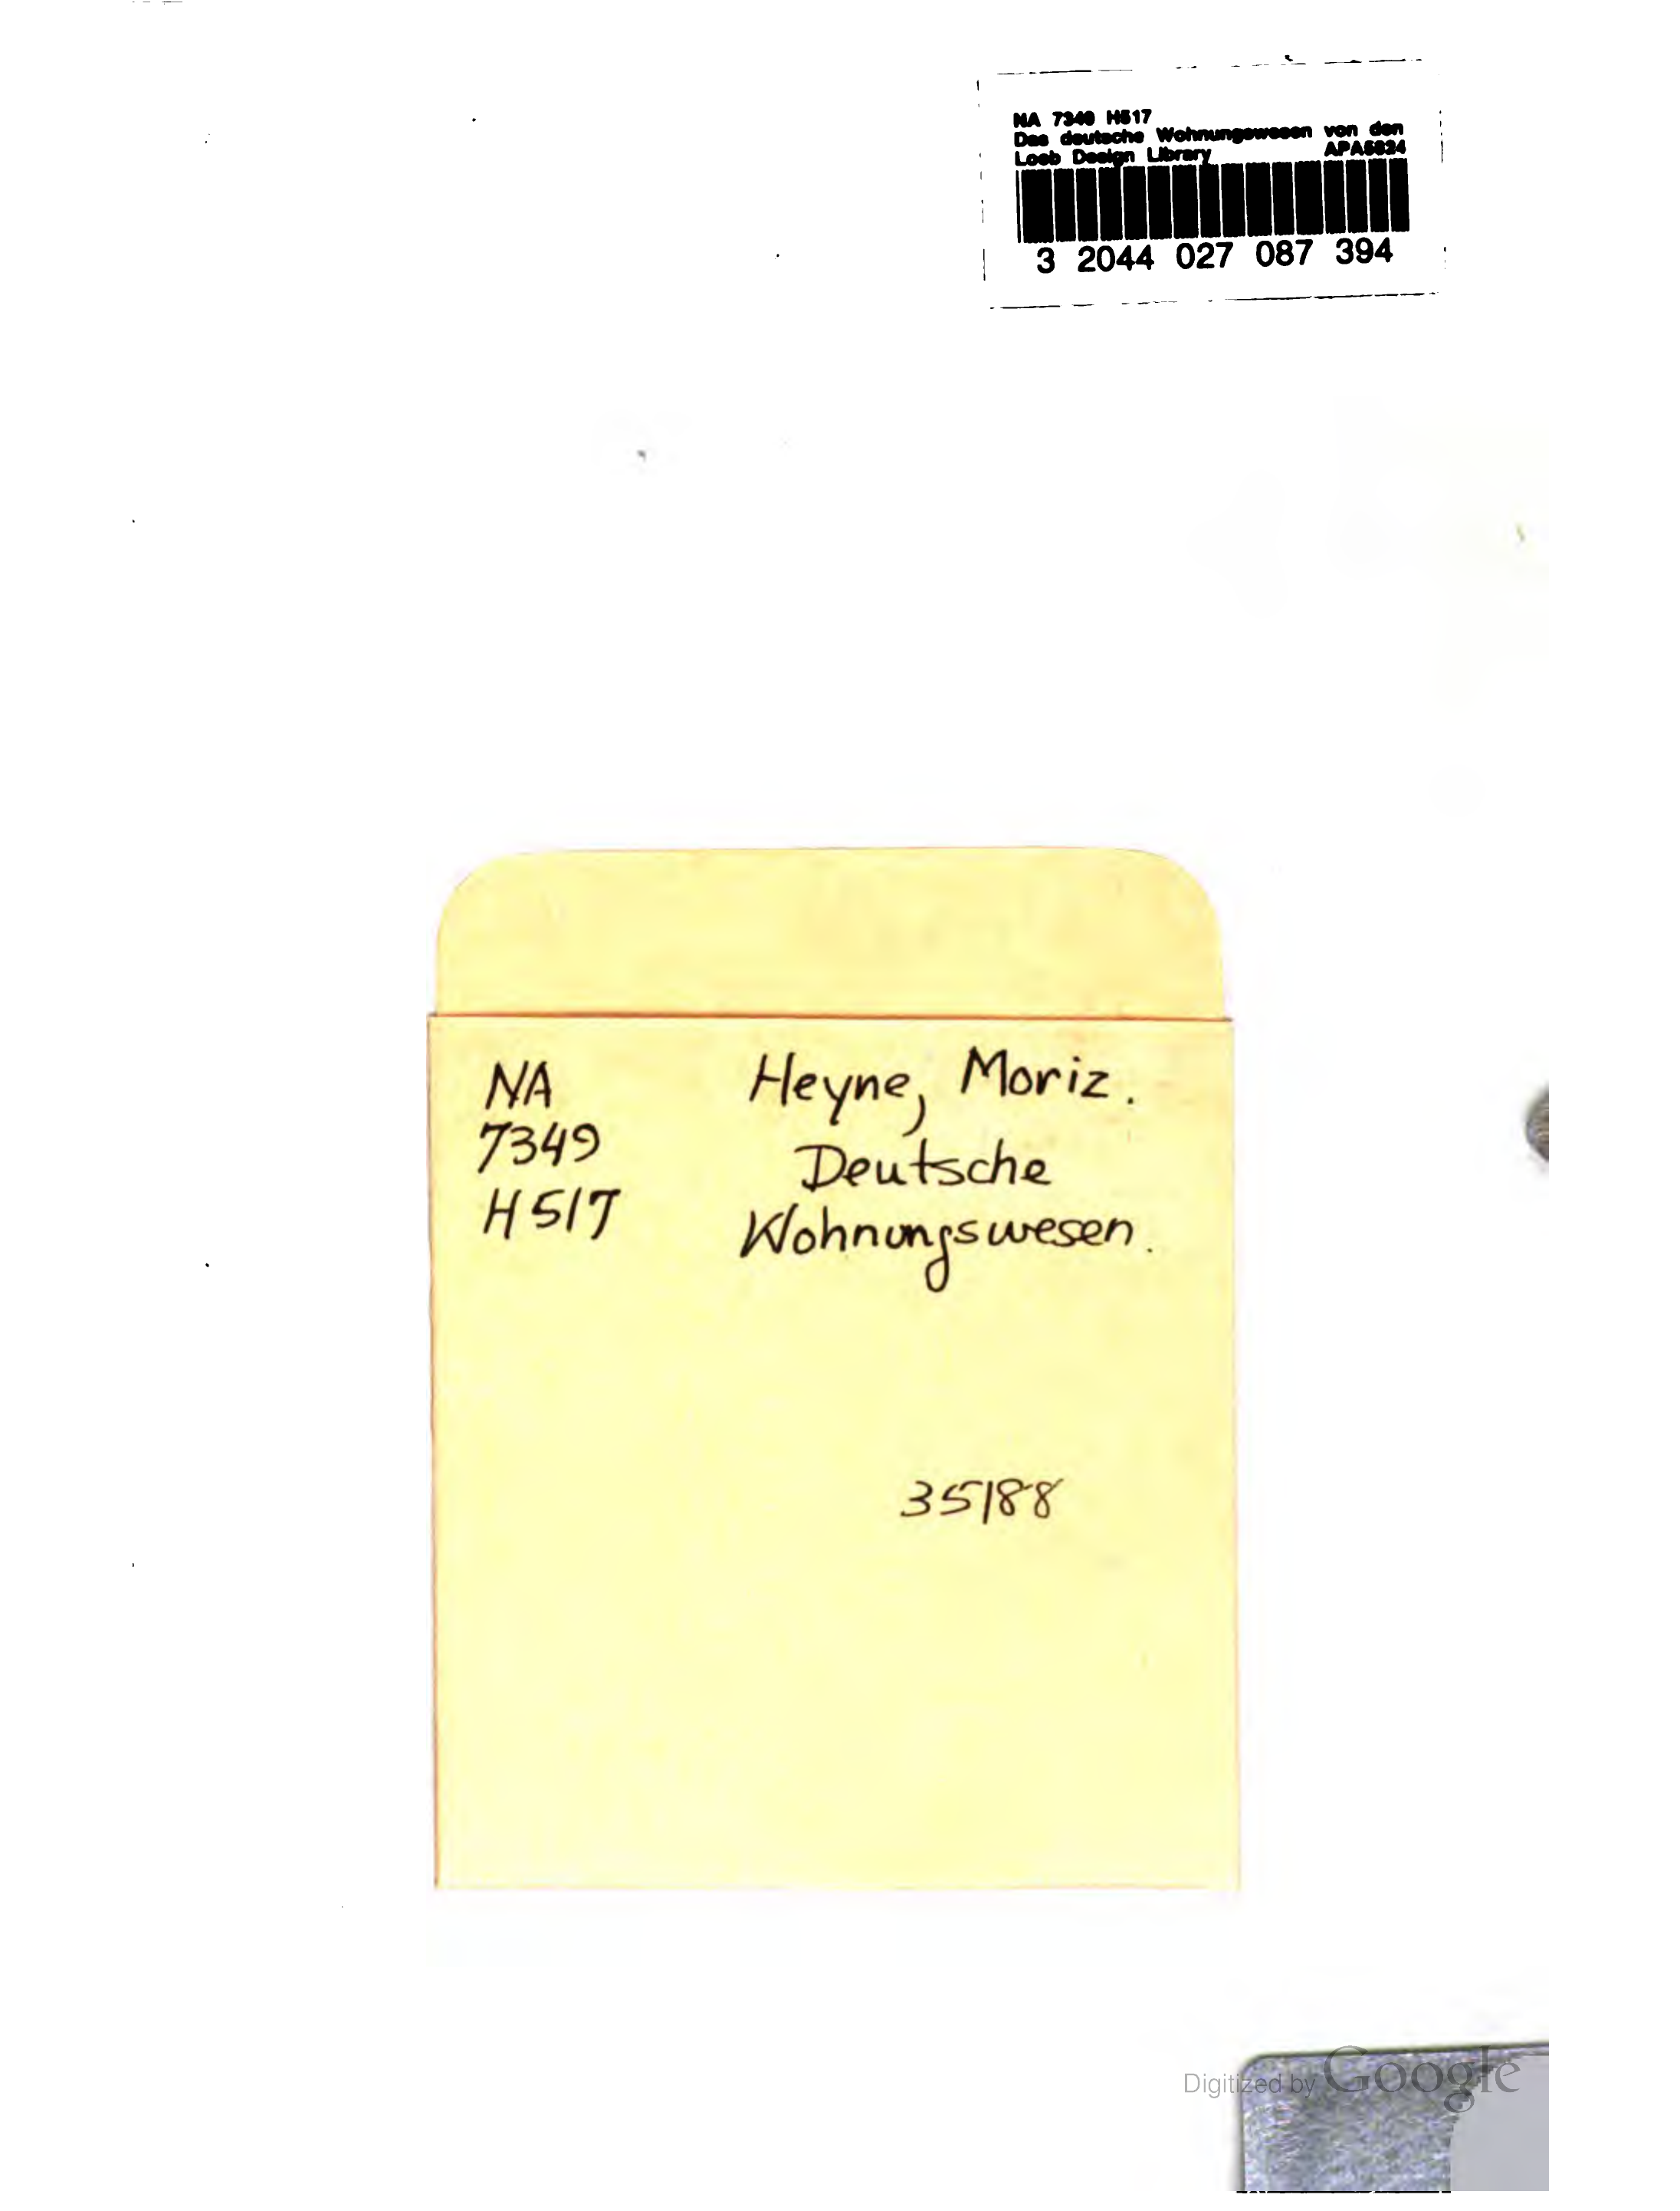 NA 7349 H517
Das deutsche Wohnungswesen von den
Loeb Design Library APA5824
3 2044 027 087 394
NA
7349
H517
Heyne, Moriz.
Deutsche
Wohnungswesen.
35188
Digitized by Google